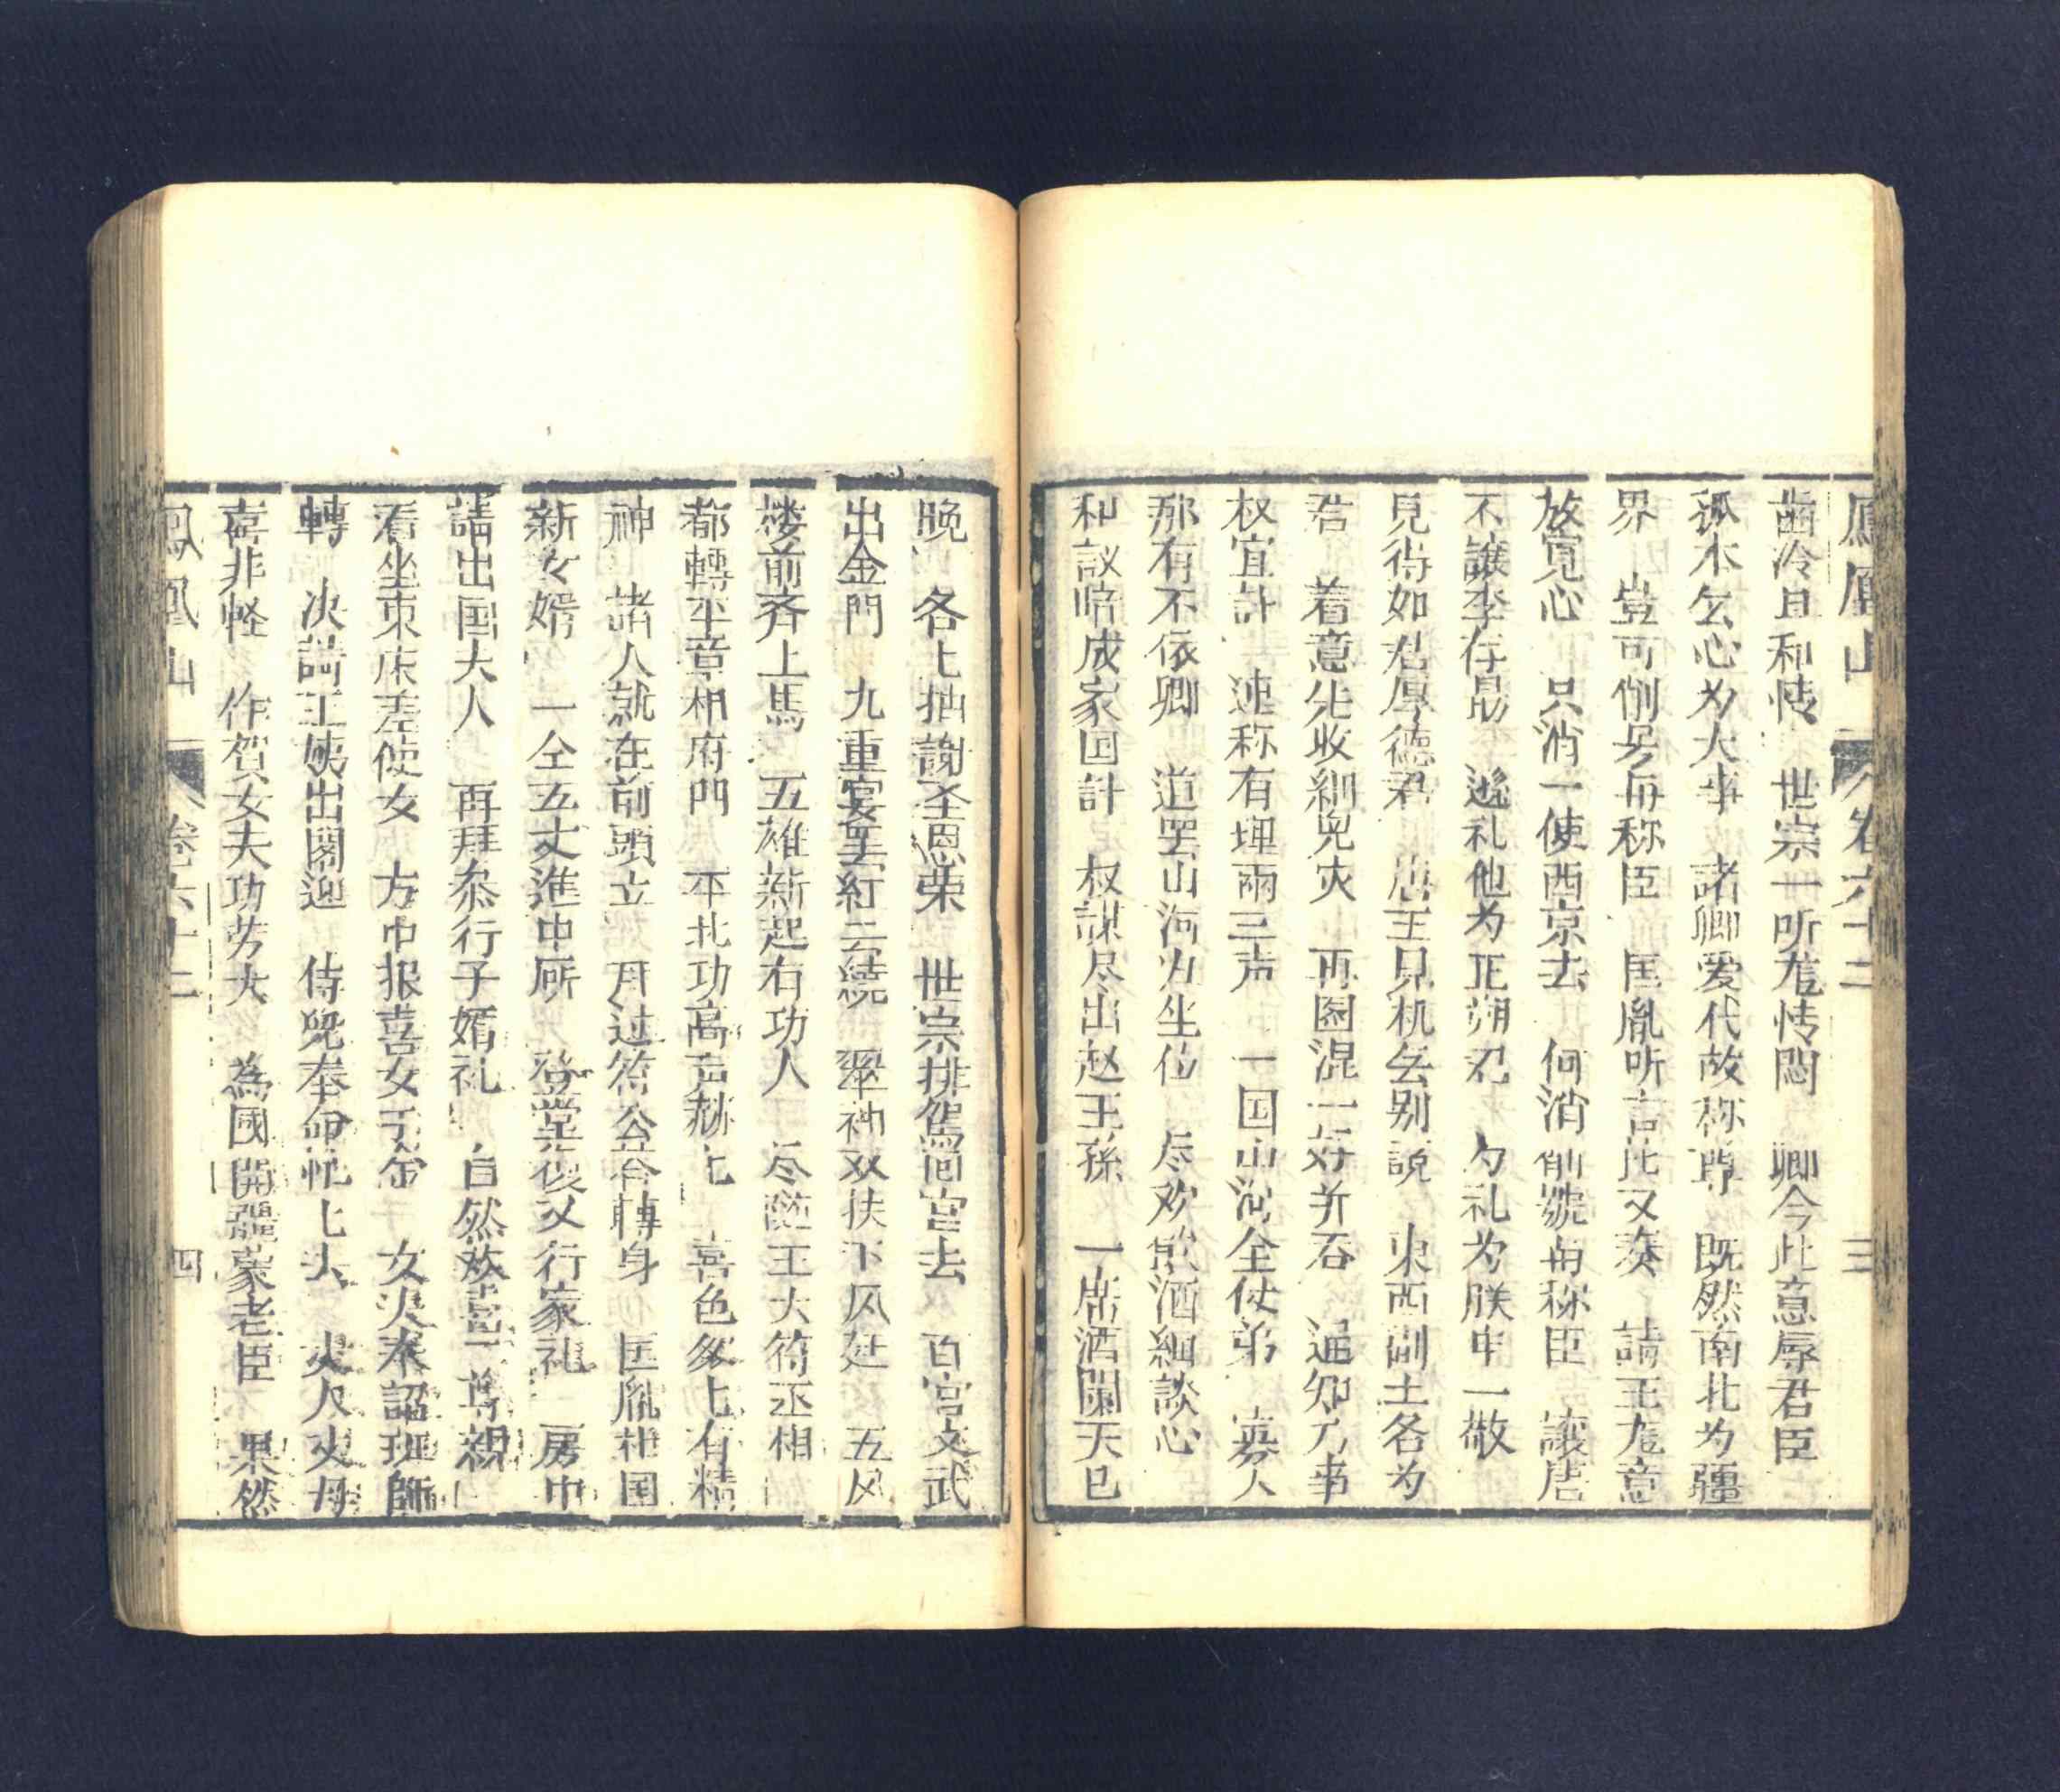 鳳凰山 卷六十二 三
齒冷且和情 世宗一听龙情悶 卿今此意辱君臣
孤本么心为大事 諸卿爱代故称尊 既然南北为疆
界 豈可削号再称臣 匡胤听言比又奏 請王龙意
放寬心 只消一使西京去 何消削號再称臣 讓唐
不讓李存勗 遜礼他为正朔君 为礼为朕申一敬
見得如君厚德君 唐王見机么别説 東西副土各为
君 着意先收紃兒灾 再圖混一好并吞 通知乃事
权宜計 連称有理兩三声 一国山河全仗弟 寡人
那有不依卿 道罢山河为坐位 尽欢飲酒細談心
和議暗成家国計 权謀尽出赵王孫 一席酒闌天已
晚 各匕拙謝圣恩荣 世宗排駕囬宫去 百官文武
出金門 九重宴罢紅云繞 翠神双扶下风廷 五风
楼前齐上馬 五雄新起有功人 尽随王大符丞相
都轉平章相府門 平北功高声赫匕 喜色多匕有精
神 諸人就在前頭立 月过符公合轉身 匡胤相国
新女婿 一仝五丈進中厮 登堂英後父行家礼 房中
請出国大人 再拜叅行子婿礼 自然欢喜二尊親
看坐東床差使女 方中报喜女千金 女火奉詔班師
轉 决請王姨出閣迎 侍兒奉命忙匕去 夾人夾母
喜非輕 作贺女夫功劳大 為國開疆蒙老臣 果然
鳳凰山 卷六十二 四